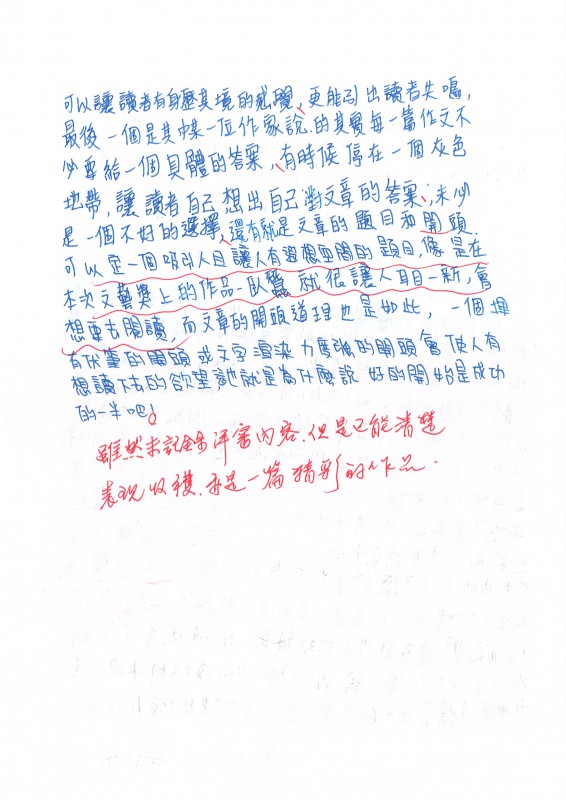 可以讓讀者有身歷其境的感覺,更能引出讀者共鳴,
最後一個是其中某一位作家說的其實每一篇作文不
必要給一個具體的答案,有時候停在一個灰色
地帶,讓讀者自己想出自己對文章的答案,未必
是一個不好的選擇,還有就是文章的題目和開頭.
可以定一個吸引人目讓人有遐想空間的題目,像是在
本次文藝獎上的作品-臥蠶 就很讓人耳目一新,會
想要去閱讀,而文章的開頭道理也是如此,一個埋
有伏筆的開頭或文字渲染力度強的開頭會使人有
想讀下去的欲望 這就是為什麼說 好的開始是成功
的一半吧!
雖然未記錄評審內容.但是已能清楚
表現收穫.亦是一篇精彩的作品.